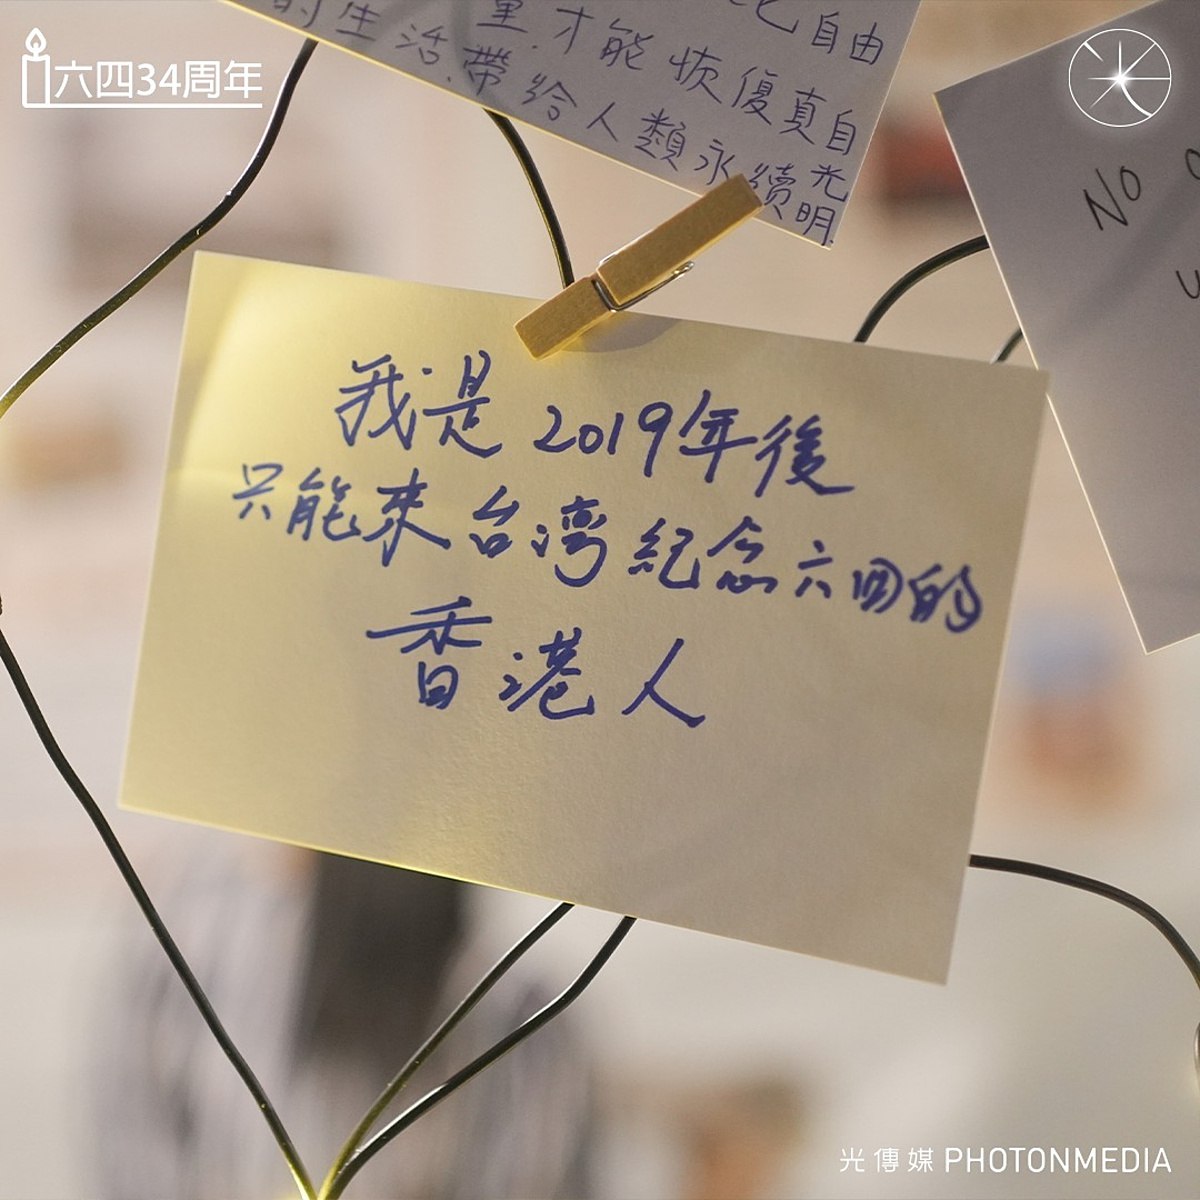 六四34周年
自由
的生活,帶給人類永續光明.
里.才能恢復真自
No
我是2019年後
只能來台灣紀念六四的
香港人
光傳媒 PHOTONMEDIA